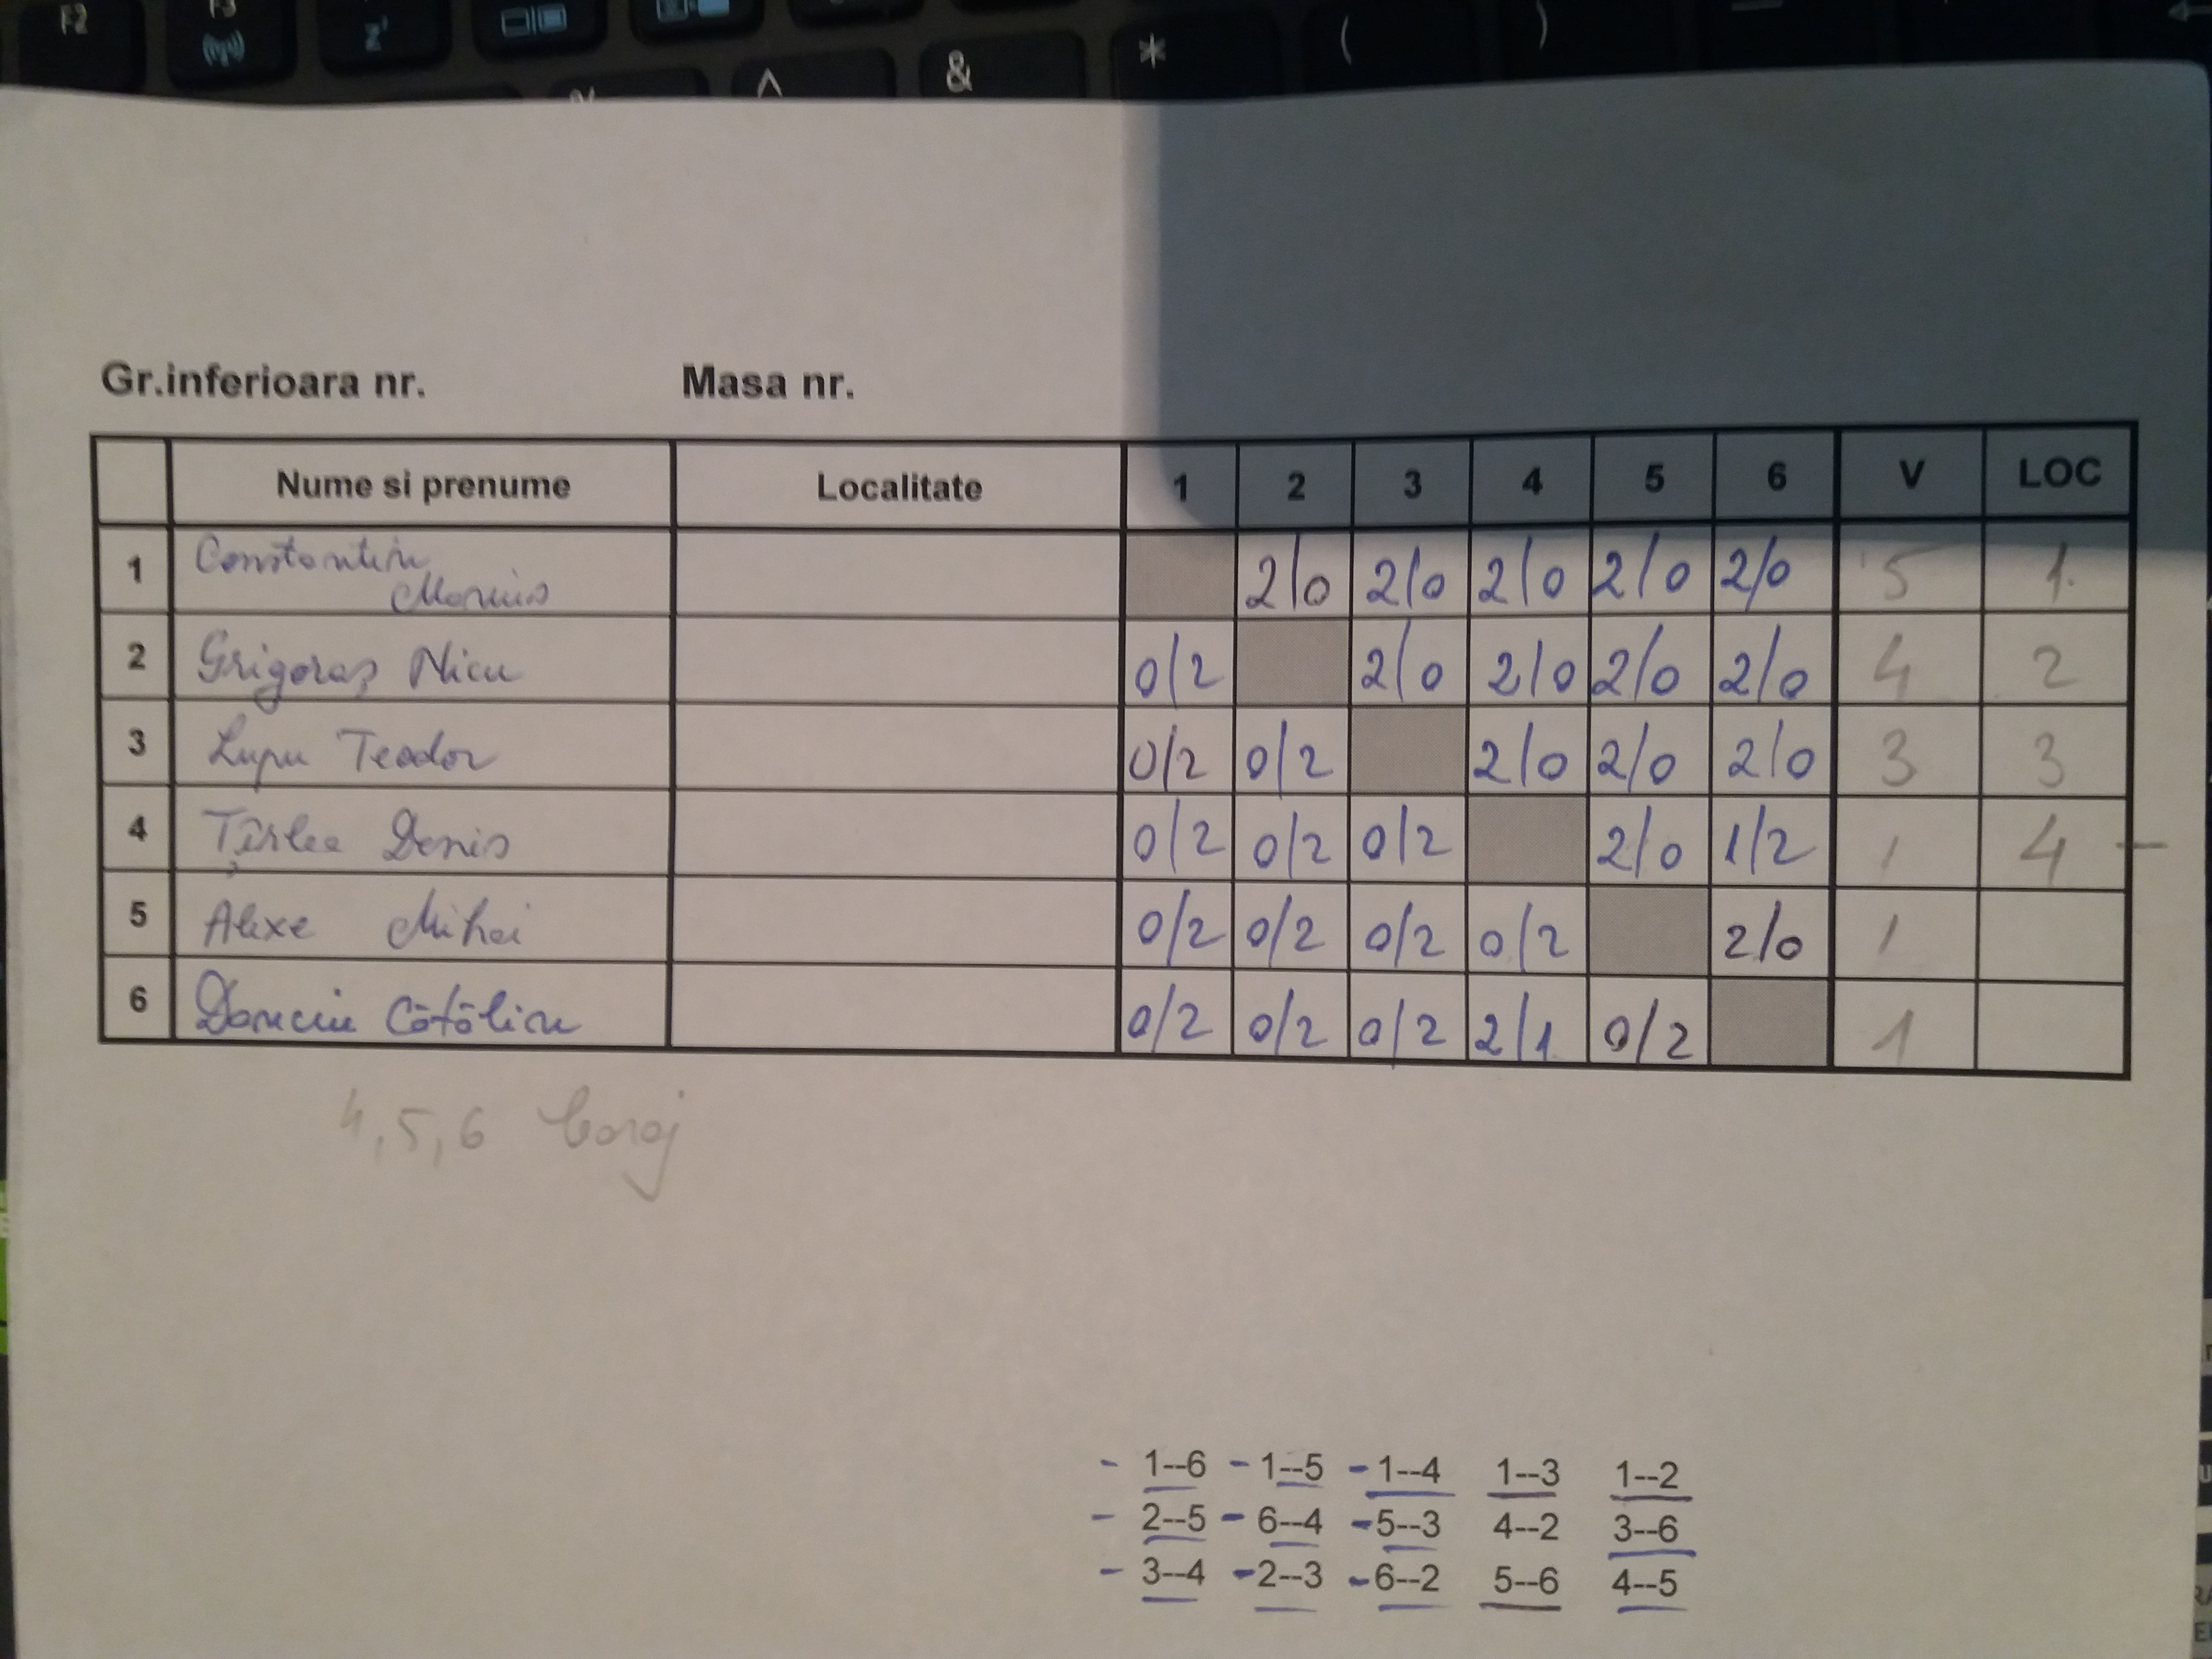 F2 F3 z
% ^ & * ( ) _
Gr.inferioara nr. Masa nr.
Nume si prenume Localitate 1 2 3 4 5 6 V LOC
1 Constantin Marius 2/0 2/0 2/0 2/0 2/0 5 1
2 Grigoraș Nicu 0/2 2/0 2/0 2/0 2/0 4 2
3 Lupu Teodor 0/2 0/2 2/0 2/0 2/0 3 3
4 Țîrlea Denis 0/2 0/2 0/2 2/0 1/2 1 4 -
5 Alexe Mihai 0/2 0/2 0/2 0/2 2/0 1
6 Cătălin 0/2 0/2 0/2 2/1 0/2 1
4,5,6 baraj
- 1--6 - 1--5 - 1--4 1--3 1--2
- 2--5 - 6--4 - 5--3 4--2 3--6
- 3--4 - 2--3 - 6--2 5--6 4--5